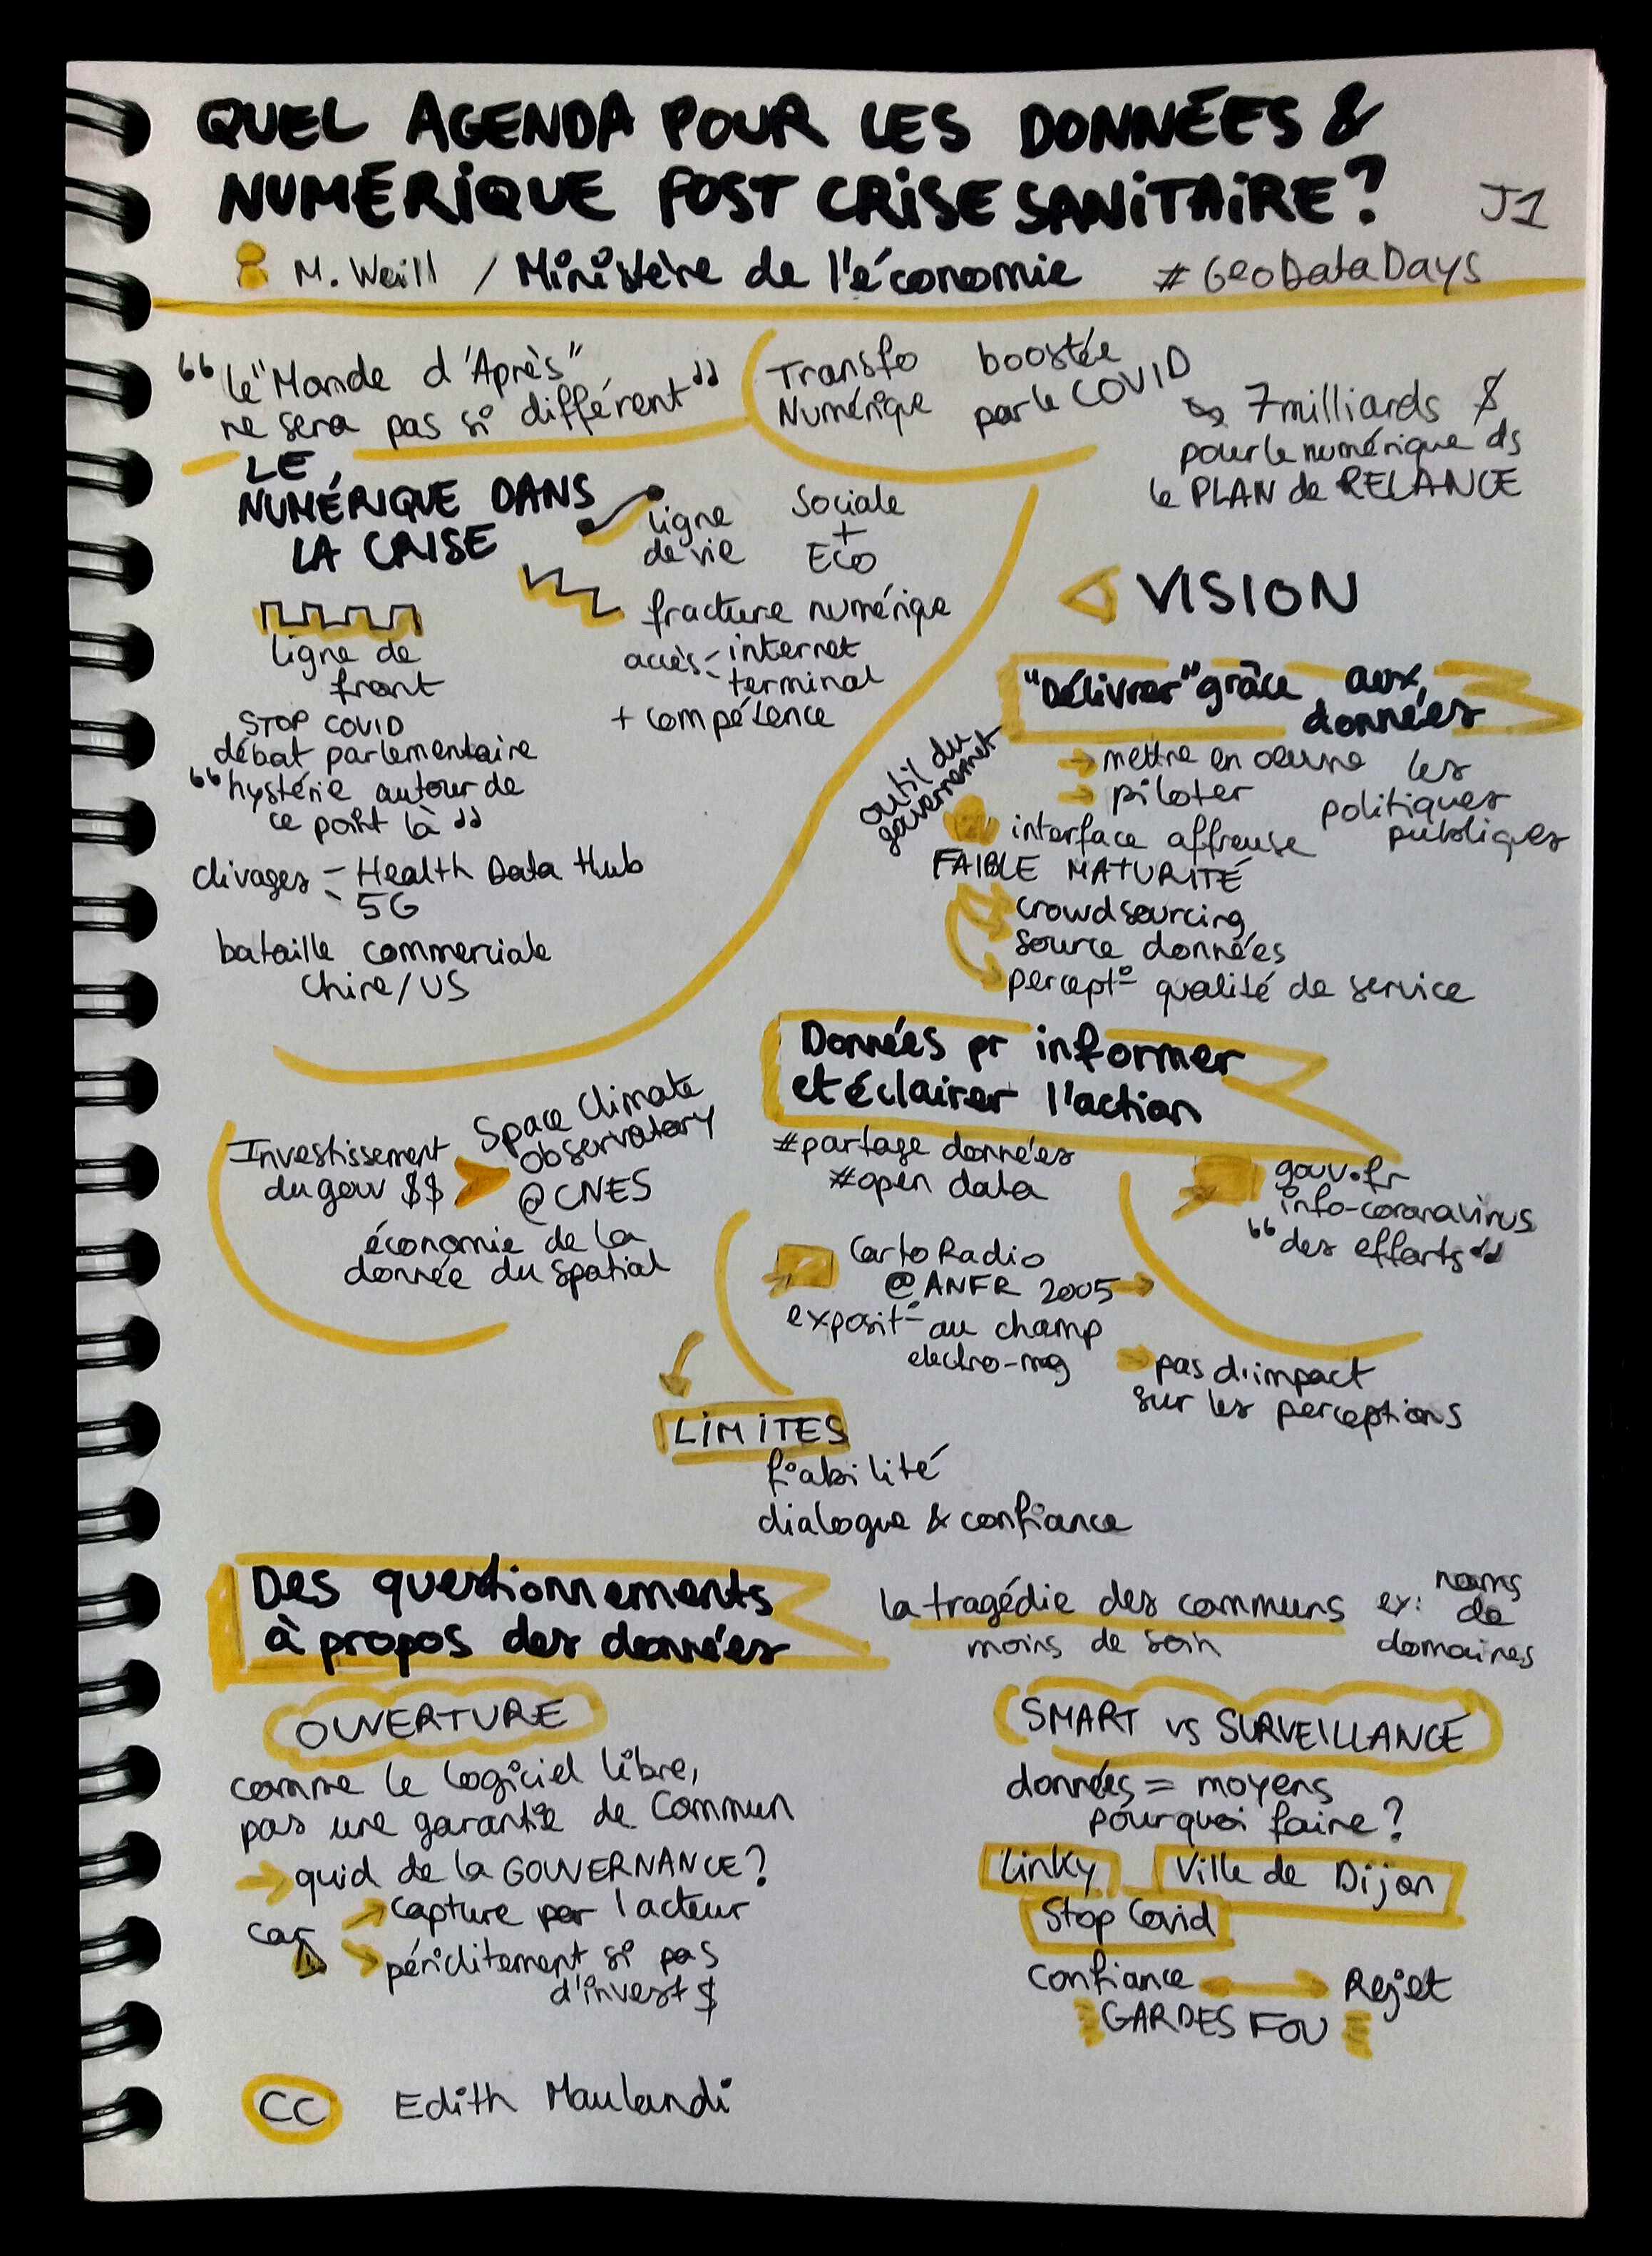 QUEL AGENDA POUR LES DONNÉES &
NUMÉRIQUE POST CRISE SANITAIRE ?
J1
M. Weill / Ministère de l'économie #GeoDataDays
“le "Monde d'Après"
ne sera pas si différent”
Transfo
Numérique
boostée
par le COVID
7 milliards $
pour le numérique ds
le PLAN de RELANCE
LE
NUMÉRIQUE DANS
LA CRISE
ligne
de vie
Sociale
+
Eco
fracture numériqe
accès - internet
terminal
+ compétence
ligne de
front
STOP COVID
débat parlementaire
“hystérie autour de
ce point là”
clivages - Health Data Hub
- 5G
bataille commerciale
Chine/US
VISION
"Délivrer" grâce aux
données
→ mettre en oeuvre
→ piloter
les
politiques
publiques
outil du
gouvernemet
interface affreuse
FAIBLE MATURITÉ
crowdsourcing
source données
percept° qualité de service
Données pr informer
et éclairer l'action
#partage données
#open data
gouv.fr
info-coronavirus
“des efforts”
Investissement
du gouv $$
Space Climate
Observatory
@CNES
économie de la
donnée du spatial
CartoRadio
@ANFR 2005 →
exposit° au champ
electro-mg
→ pas d'impact
sur les perceptions
LIMITES
fiabilité
dialogue & confiance
Des questionnements
à propos des données
la tragédie des communs
moins de soin
ex: noms
de
domaines
OUVERTURE
comme le logiciel libre,
pas une garantie de Commun
→ quid de la GOUVERNANCE?
car
capture par l'acteur
périclitement si pas
d'invest $
SMART vs SURVEILLANCE
données = moyens
pourquoi faire?
Linky
Ville de Dijon
Stop Covid
Confiance ↔ Rejet
GARDES FOU
CC Edith Maulandi